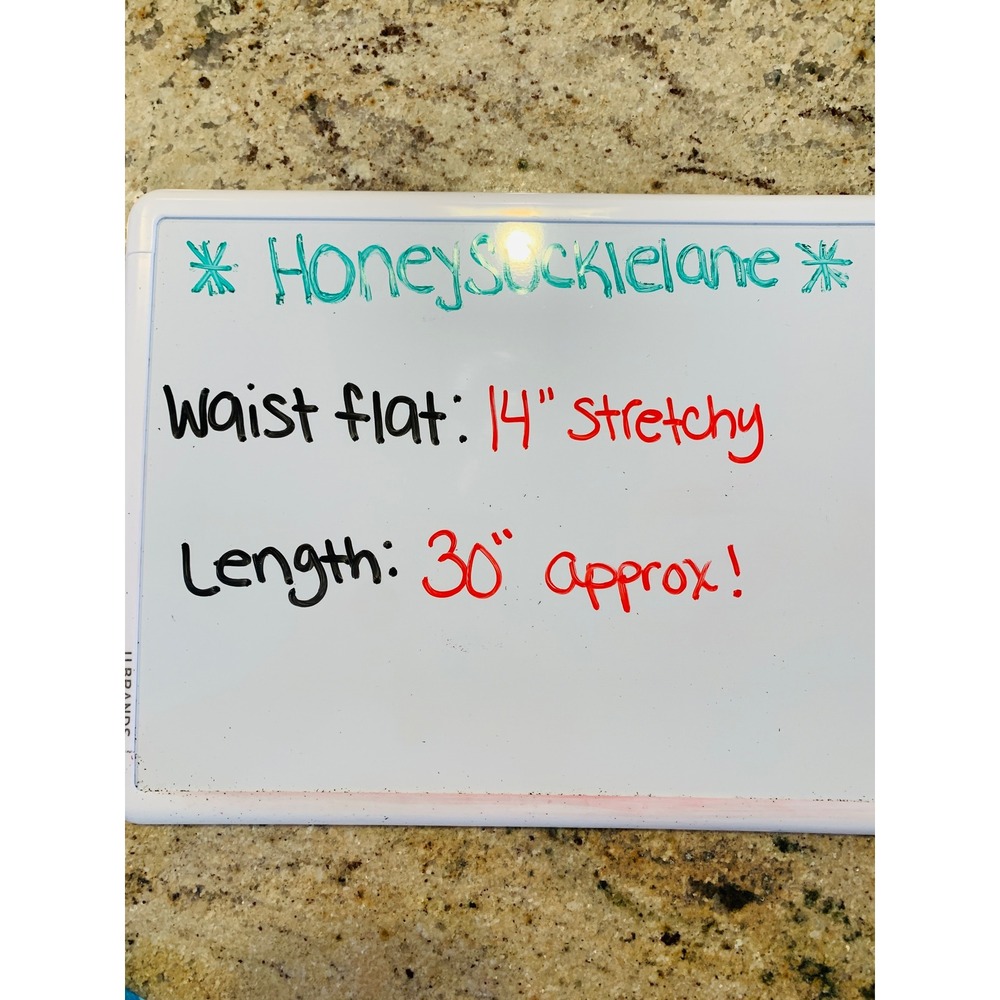 * Honeysucklelane *
Waist flat: 14" stretchy
Length: 30" approx!
U BRANDS